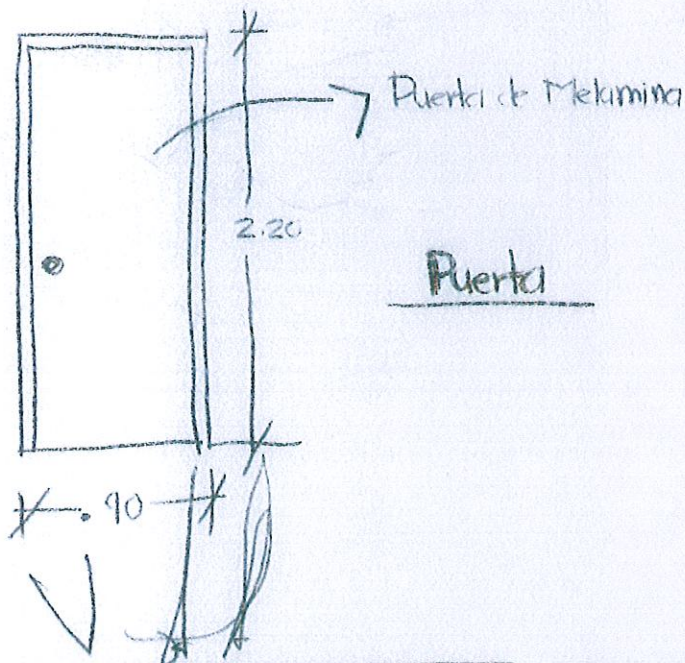 Puerta de Melamina
2.20
Puerta
.90